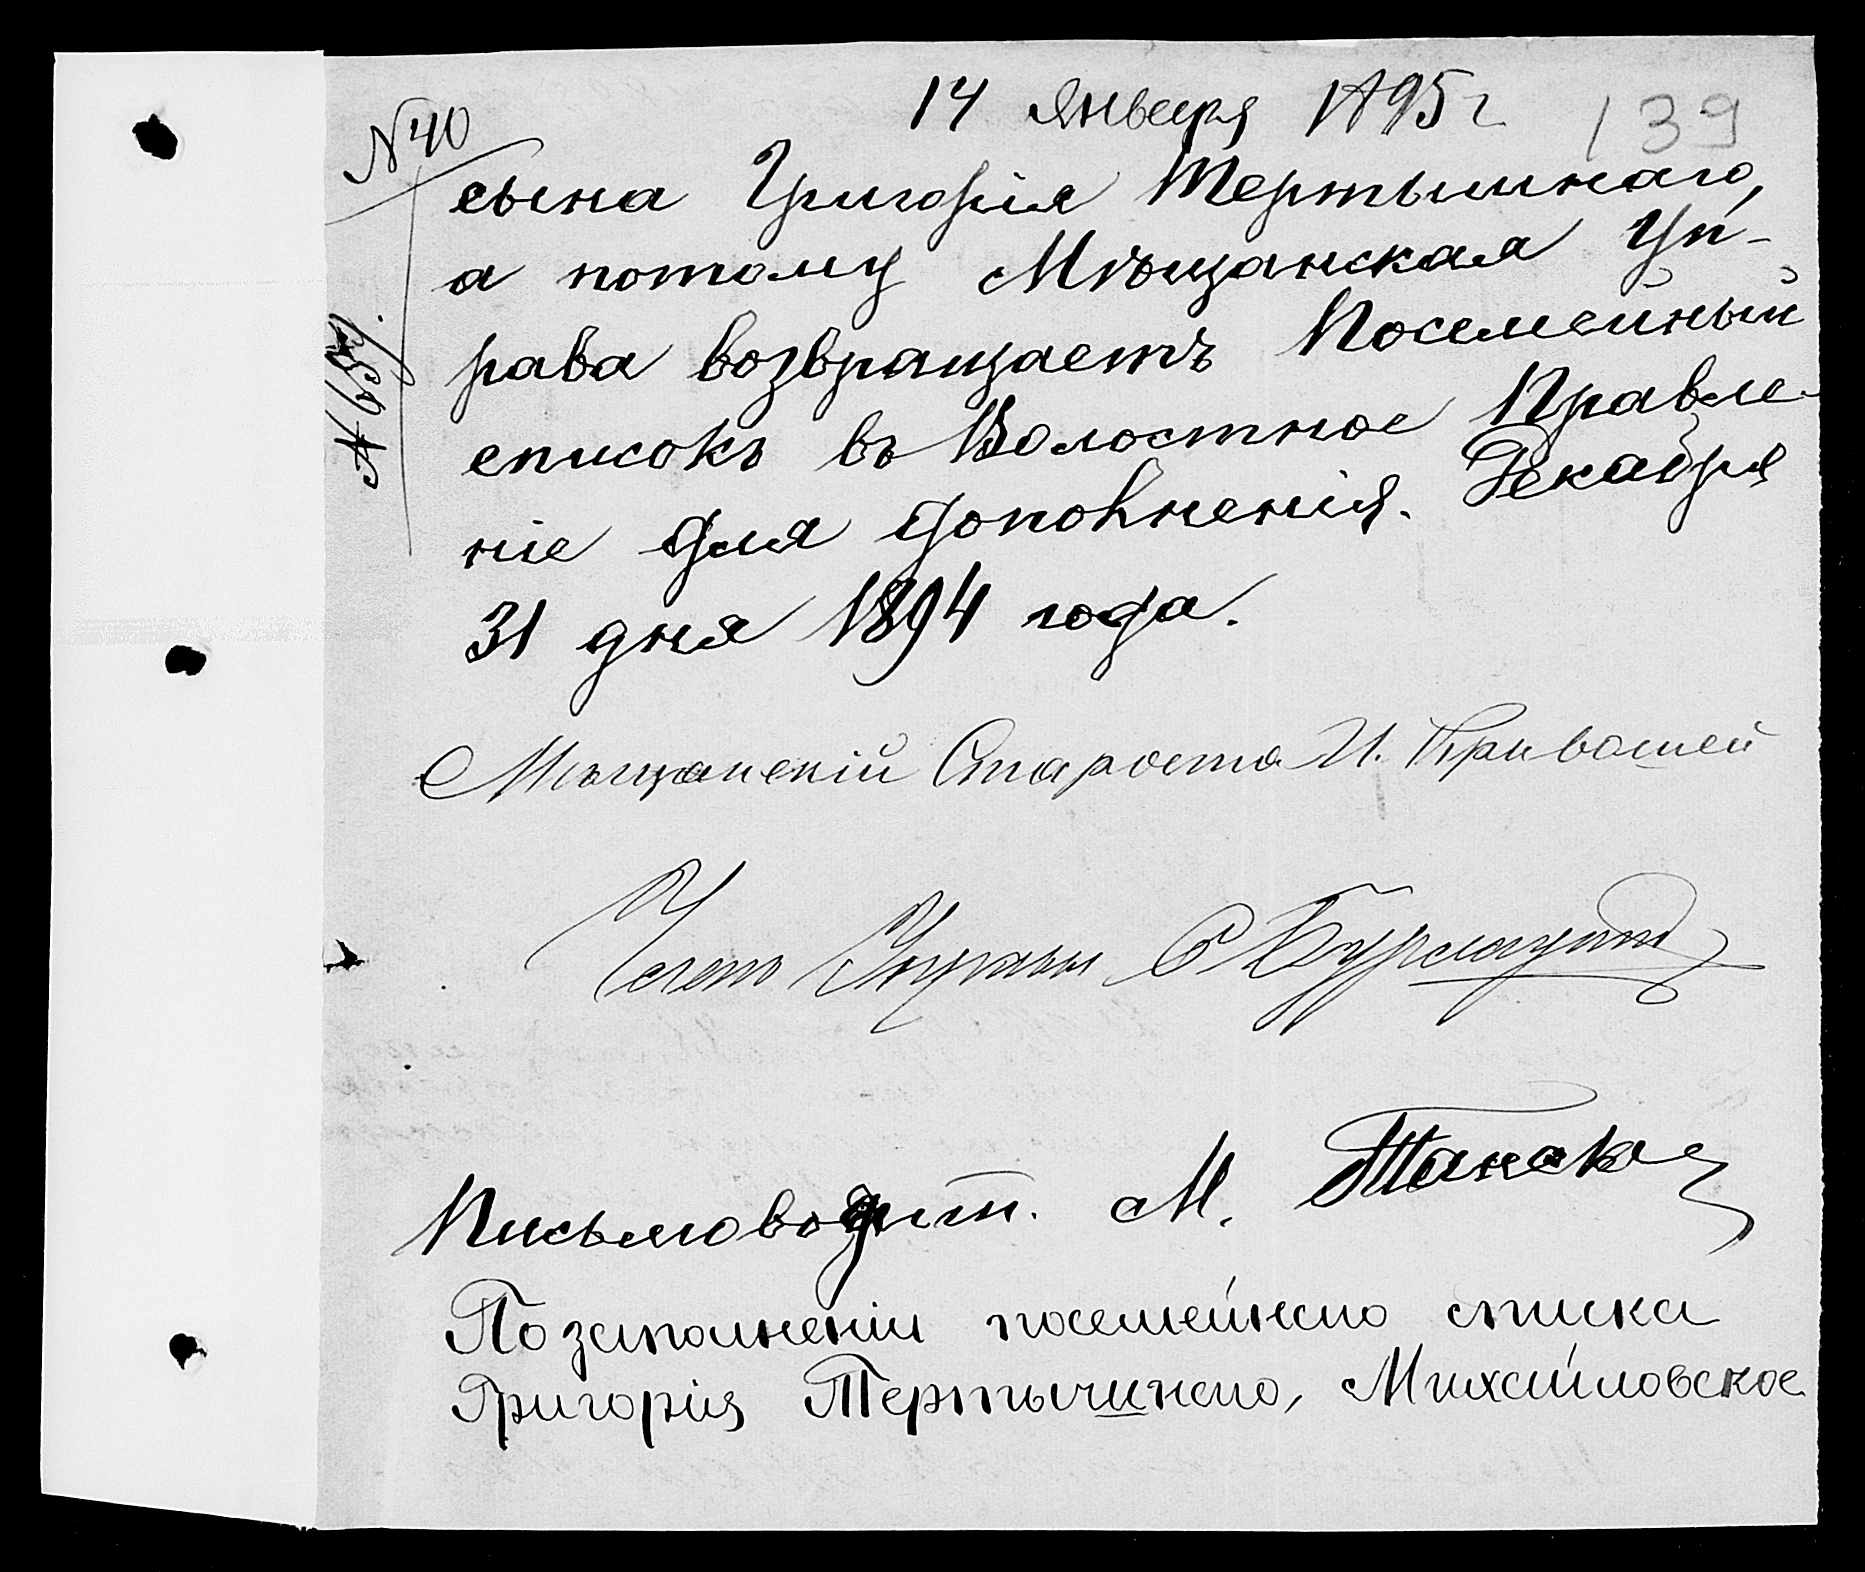 14 января 1895 г
139
№ 40
сына Григорія Тертышнаго,
а потому Мѣщанская Уп-
рава возвращаетъ Посемейный
списокъ въ Волостное Правле-
ніе для дополненія. Декабря
31 дня 1894 года.
№ 657.
Мѣщанскій Староста И. Кривошей
Членъ Управы
Письмоводит. М.
По заполненіи посемейнаго списка
Григорія Тертычинаго, Михайловское